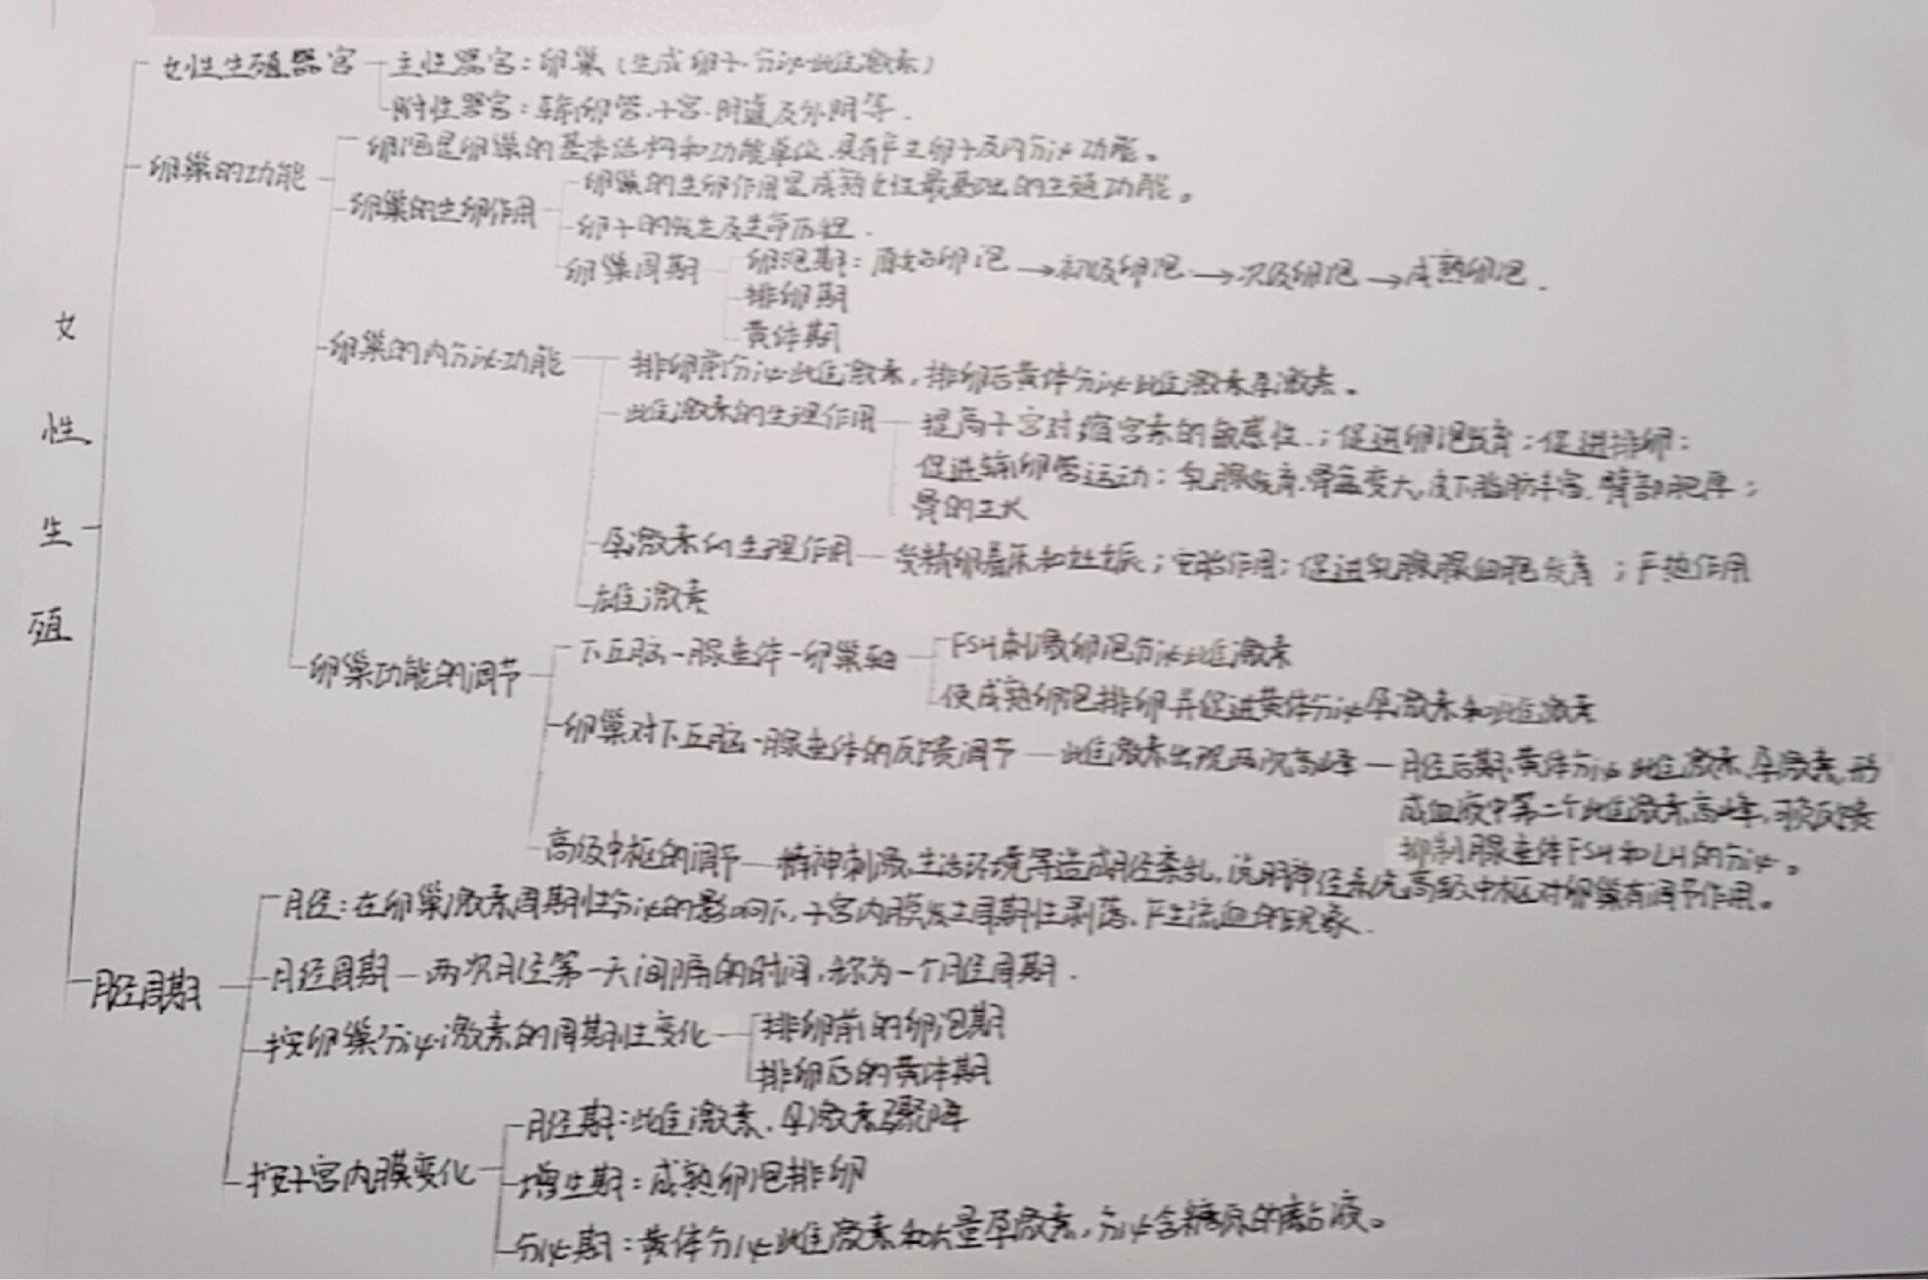 女性生殖
女性生殖器官
主性器官：卵巢（生成卵子.分泌雌激素）
附性器官：输卵管.子宫.阴道及外阴等.
卵巢的功能
卵泡是卵巢的基本结构和功能单位.具有产生卵子及内分泌功能。
卵巢的生卵作用
卵巢的生卵作用是成熟女性最基础的生殖功能。
卵子的发生及生命历程.
卵巢周期
卵泡期：原始卵泡→初级卵泡→次级卵泡→成熟卵泡.
排卵期
黄体期
卵巢的内分泌功能
排卵前分泌雌激素，排卵后黄体分泌雌激素孕激素。
雌激素的生理作用
提高子宫对缩宫素的敏感位.；促进卵泡发育；促进排卵；
促进输卵管运动；乳腺发育.骨盆变大.皮下脂肪丰富.臀部肥厚；
骨的生长
孕激素的生理作用
受精卵着床和妊娠；安胎作用；促进乳腺腺细胞发育；产热作用
雄激素
卵巢功能的调节
下丘脑-腺垂体-卵巢轴
FSH刺激卵泡分泌雌激素
使成熟卵泡排卵并促进黄体分泌孕激素和雌激素
卵巢对下丘脑-腺垂体的反馈调节
雌激素出现两次高峰
月经后期.黄体分泌雌激素.孕激素，形
成血液中第二个雌激素高峰，可负反馈
抑制腺垂体FSH和LH的分泌。
高级中枢的调节
精神刺激.生活环境等造成月经紊乱，说明神经系统高级中枢对卵巢有调节作用。
月经周期
月经：在卵巢激素周期性分泌的影响下，子宫内膜发生周期性剥落.产生流血的现象.
月经周期
两次月经第一天间隔的时间，称为一个月经周期.
按卵巢分泌激素的周期性变化
排卵前的卵泡期
排卵后的黄体期
按子宫内膜变化
月经期：雌激素.孕激素骤降
增生期：成熟卵泡排卵
分泌期：黄体分泌雌激素和大量孕激素，分泌含糖原的黏液。